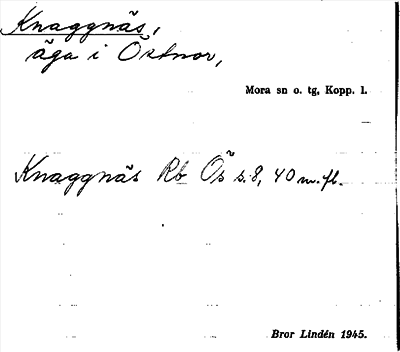 Knaggnäs,
äga i Östnor,
Mora sn o. tg, Kopp. l.
Knaggnäs Rb Ös s. 8, 40 m. fl.
Bror Lindén 1945.